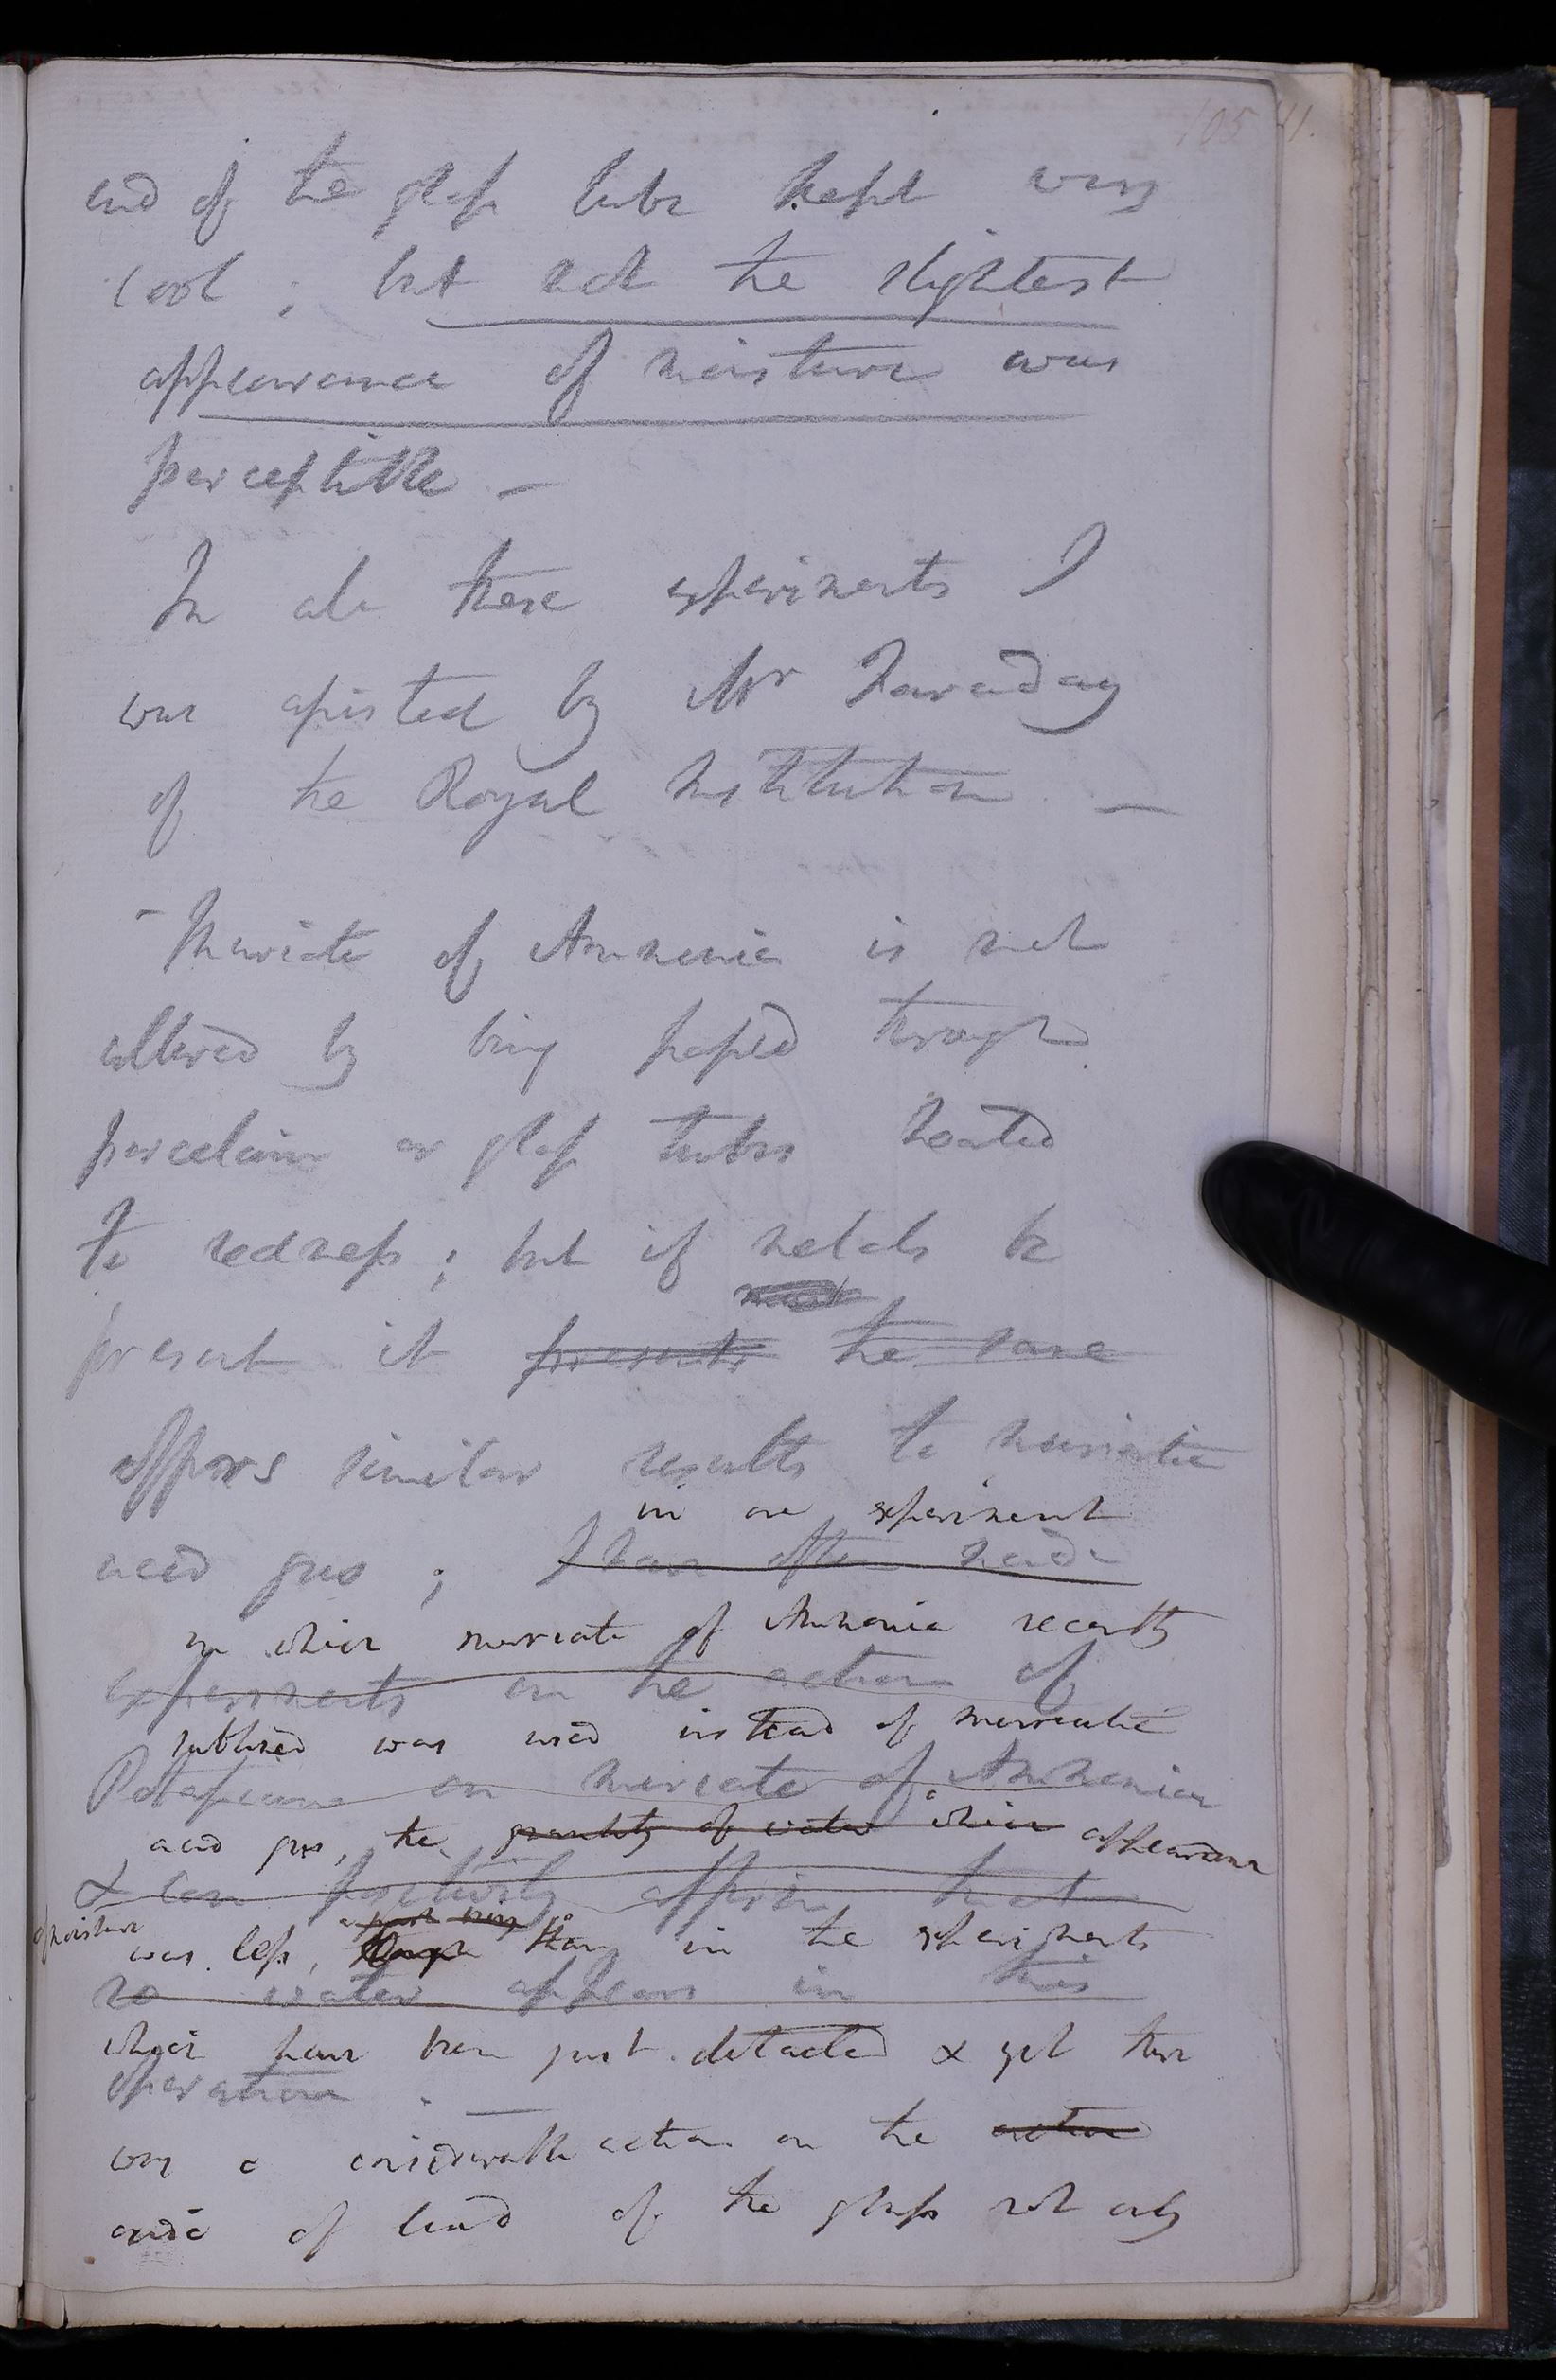 105 41.
end of the glass tube kept very
cool ; but not the slightest
appearance of moisture was
perceptible —
In all these experiments I
was assisted by Mr Faraday
of the Royal Institution —
- Muriate of Ammonia is not
altered by being passed through
porcelain or glass tubes heated
to redness ; but if metals be
present it presents the same
affords similar results to muriatic
in one experiment
acid gas ; I have often made
in which muriate of Ammonia recently
experiments on the action of
sublimed was used instead of muriatic
Potassium on muriate of Ammonia
acid gas, the quantity of water which appearance
& can positively affirm that
of moisture was less, though than in the experiments
no water appears in this
which have been just detailed & yet there
operation . —
was a considerable action on the action
oxide of lead of the glass not only